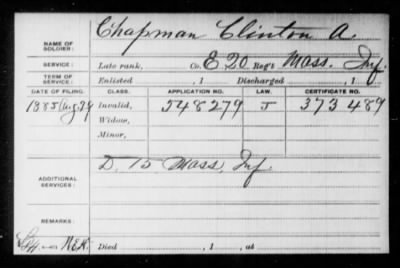 Chapman Clinton A.
NAME OF SOLDIER:
SERVICE: Late rank, Co. E 20 Reg't Mass. Inf.
TERM OF SERVICE: Enlisted , 1 Discharged , 1
DATE OF FILING. CLASS. APPLICATION NO. LAW. CERTIFICATE NO.
1885 Aug. 29 Invalid, 548279 J 373489
Widow,
Minor,
D. 15 Mass. Inf.
ADDITIONAL SERVICES:
REMARKS:
Died , 1 , at